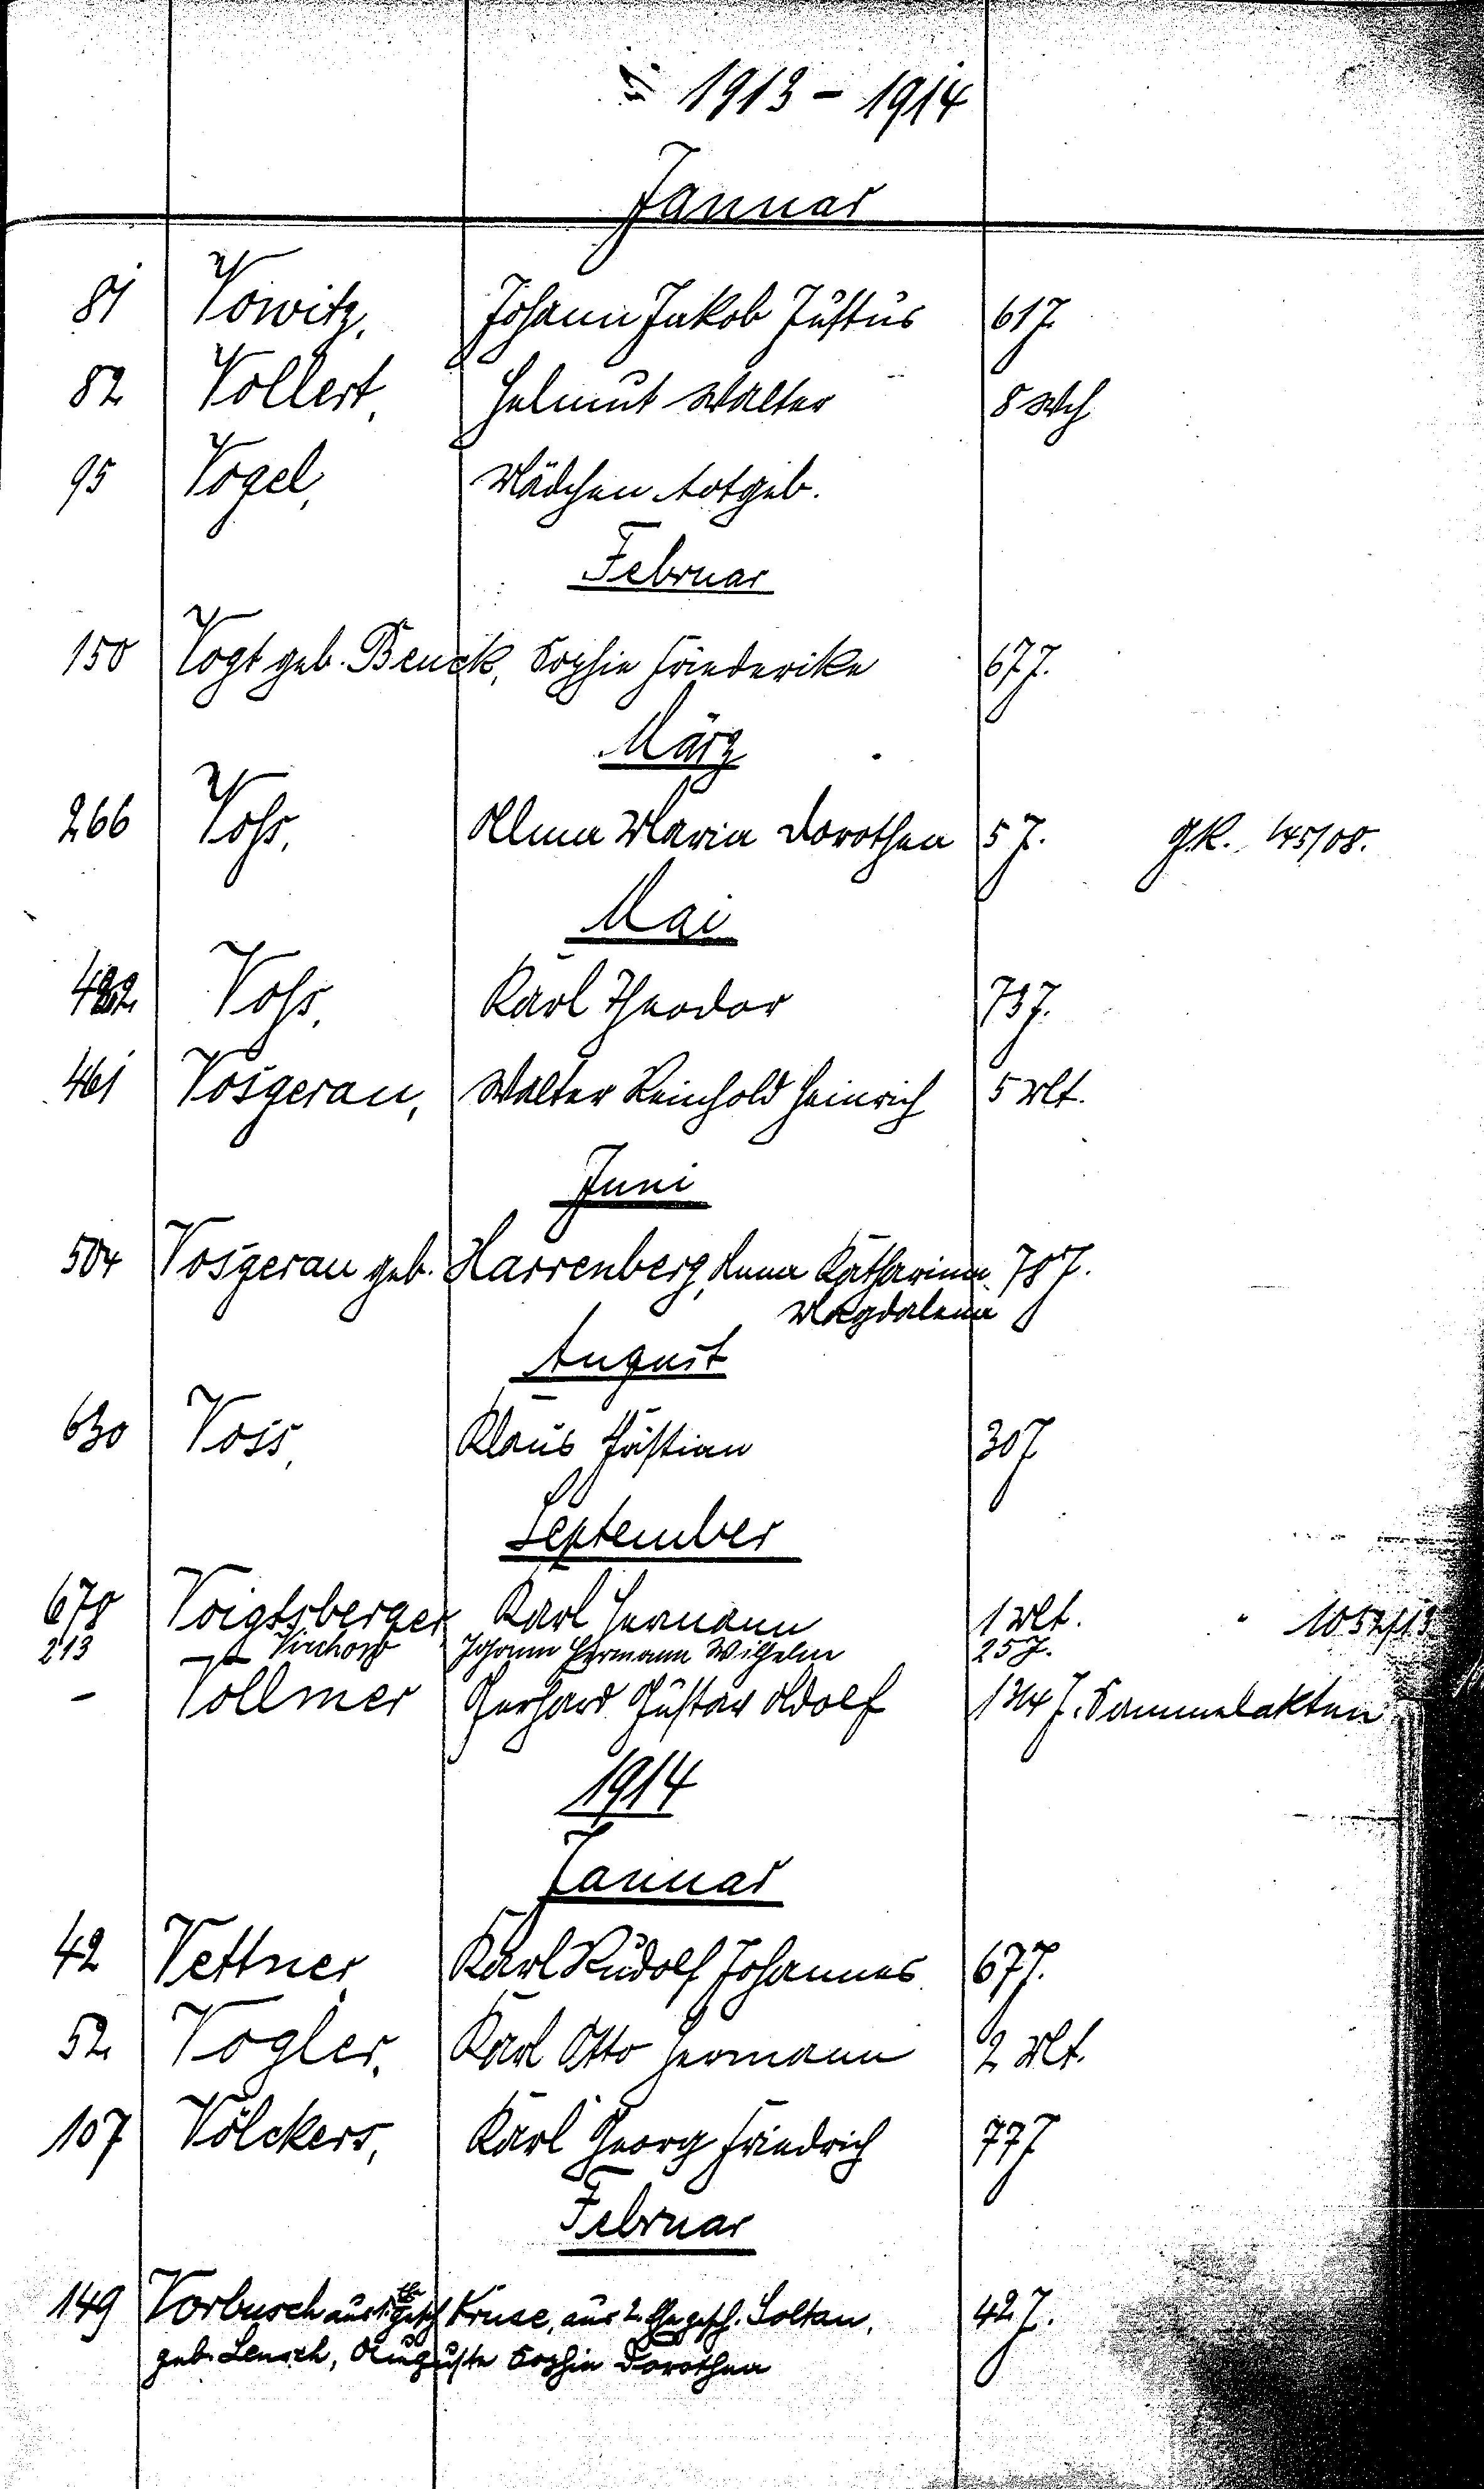 1913 - 1914
Januar
81 Vowitz, Johann Jakob Justus 61 J.
82 Vollert, Helmut Walter 8 Wch
95 Vogel, Mädchen totgeb.
Februar
150 Vogt geb. Benck, Sophie Friederike 67 J.
März
266 Voss, Alma Maria Dorothea 5 J. G.R. 145/08.
Mai
Voss, Karl Theodor 73 J.
461 Vosgerau, Walter Reinhold Heinrich 5 Mt.
Juni
504 Vosgerau geb. Harrenberg, Anna Katharina 78 J.
Magdalena
August
630 Voss, Klaus Hästian 30 J
September
678 Voigtsberger Karl Hermann 1 Mt. " 1052/13
213 Virchow Johann Hermann Wilhelm 25 J.
- Vollmer Gerhard Gustav Adolf 13/4 J. Sammelakten
1914
Januar
42 Vettner, Karl Rudolf Johannes 67 J.
52 Vogler, Karl Otto Hermann 2 Mt.
107 Völckers, Karl Georg Friedrich 77 J
Februar
149 Vorbusch aus 1. Ehe gesch Kruse, aus 2. Ehe gesch. Soltau, 42 J.
geb. Lensch, Auguste Sophie Dorothea